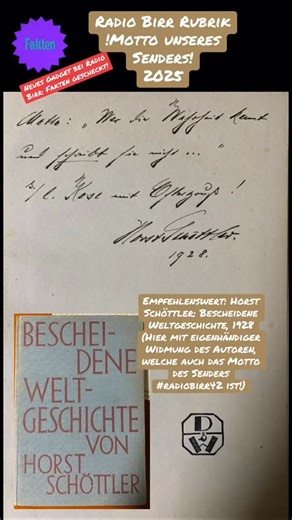 Radio Birr Rubrik
!Motto unseres
Senders!
2025
Fakten
Neues Gadget bei Radio
Birr: Fakten gescheckt!
Motto: „Wer die Wahrheit kennt
und schreibt sie nicht ..."
mit Ostergruß!
Horst Schöttler.
1928.
Empfehlenswert: Horst
Schöttler: Bescheidene
Weltgeschichte, 1928
(Hier mit eigenhändiger
Widmung des Autoren,
welche auch das Motto
des Senders
#radiobirr42 ist!)
BESCHEI-
DENE
WELT-
GESCHICHTE
VON
HORST
SCHÖTTLER